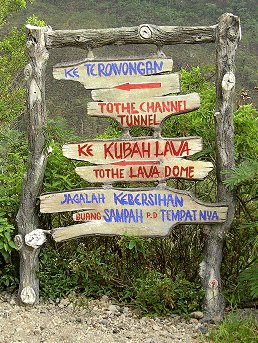 KE TEROWONGAN
TOTHE CHANNEL
TUNNEL
KE KUBAH LAVA
TOTHE LAVA DOME
JAGALAH KEBERSIHAN
BUANG SAMPAH P.D TEMPATNYA